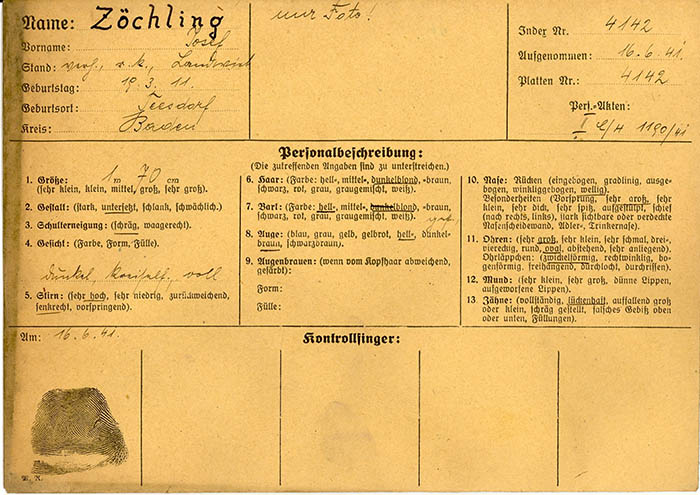 Name: Zöchling
Vorname: Josef
Stand: verh., r.k., Landwirt
Geburtstag: 19.3.11.
Geburtsort: Teesdorf
Kreis: Baden
nur Foto!
Index Nr. 4142
Aufgenommen: 16.6.41.
Platten Nr.: 4142
Pers.-Akten:
I C/H 1190/41
Personalbeschreibung:
(Die zutreffenden Angaben sind zu unterstreichen.)
1. Größe: 1 m 70 cm
(sehr klein, klein, mittel, groß, sehr groß).
2. Gestalt: (stark, untersetzt, schlank, schwächlich.)
3. Schulterneigung: (schräg, waagerecht.)
4. Gesicht: (Farbe, Form, Fülle.)
dunkel, voll
5. Stirn: (sehr hoch, sehr niedrig, zurückweichend,
senkrecht, vorspringend).
6. Haar: (Farbe: hell-, mittel-, dunkelblond, -braun,
schwarz, rot, grau, graugemischt, weiß).
7. Bart: (Farbe: hell-, mittel-, dunkelblond, -braun,
schwarz, rot, grau, graugemischt, weiß).
8. Auge: (blau, grau, gelb, gelbrot, hell-, dunkel-
braun, schwarzbraun).
9. Augenbrauen: (wenn vom Kopfhaar abweichend,
gefärbt):
Form:
Fülle:
10. Nase: Rücken (eingebogen, gradlinig, ausge-
bogen, winkliggebogen, wellig).
Besonderheiten: (Vorsprung, sehr groß, sehr
klein, sehr dick, sehr spitz, aufgestülpt, schief
(nach rechts, links), stark sichtbare oder verdeckte
Nasenscheidewand, Adler-, Trinkernase).
11. Ohren: (sehr groß, sehr klein, sehr schmal, drei-,
viereckig, rund, oval, abstehend, sehr anliegend).
Ohrläppchen: (zwickelförmig, rechtwinklig, bo-
genförmig, freihängend, durchlocht, durchrissen).
12. Mund: (sehr klein, sehr groß, dünne Lippen,
aufgeworfene Lippen).
13. Zähne: (vollständig, lückenhaft, auffallend groß
oder klein, schräg gestellt, falsches Gebiß oben
oder unten, Füllungen).
Am: 16.6.41.
Kontrollfinger: